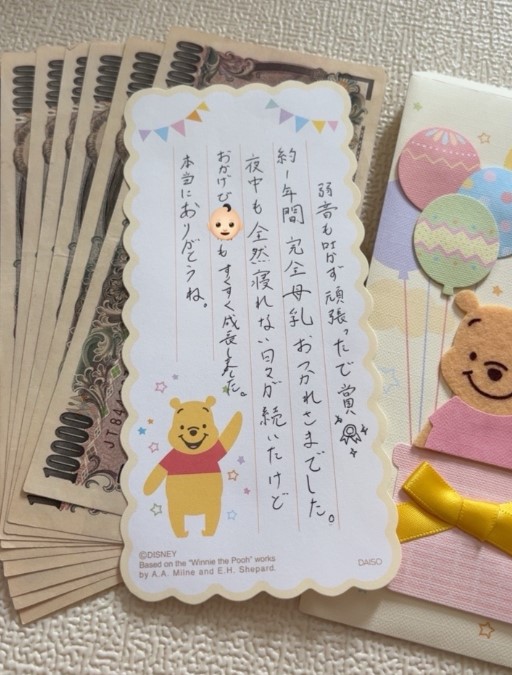 弱音も吐かず頑張ったで賞
約1年間 完全母乳 おつかれさまでした。
夜中も全然寝れない日々が続いたけど
おかげで👶🏻もすくすく成長しました。
本当にありがとうね。
©DISNEY
Based on the "Winnie the Pooh" works
by A.A. Milne and E.H. Shepard.
DAISO
10000
10000